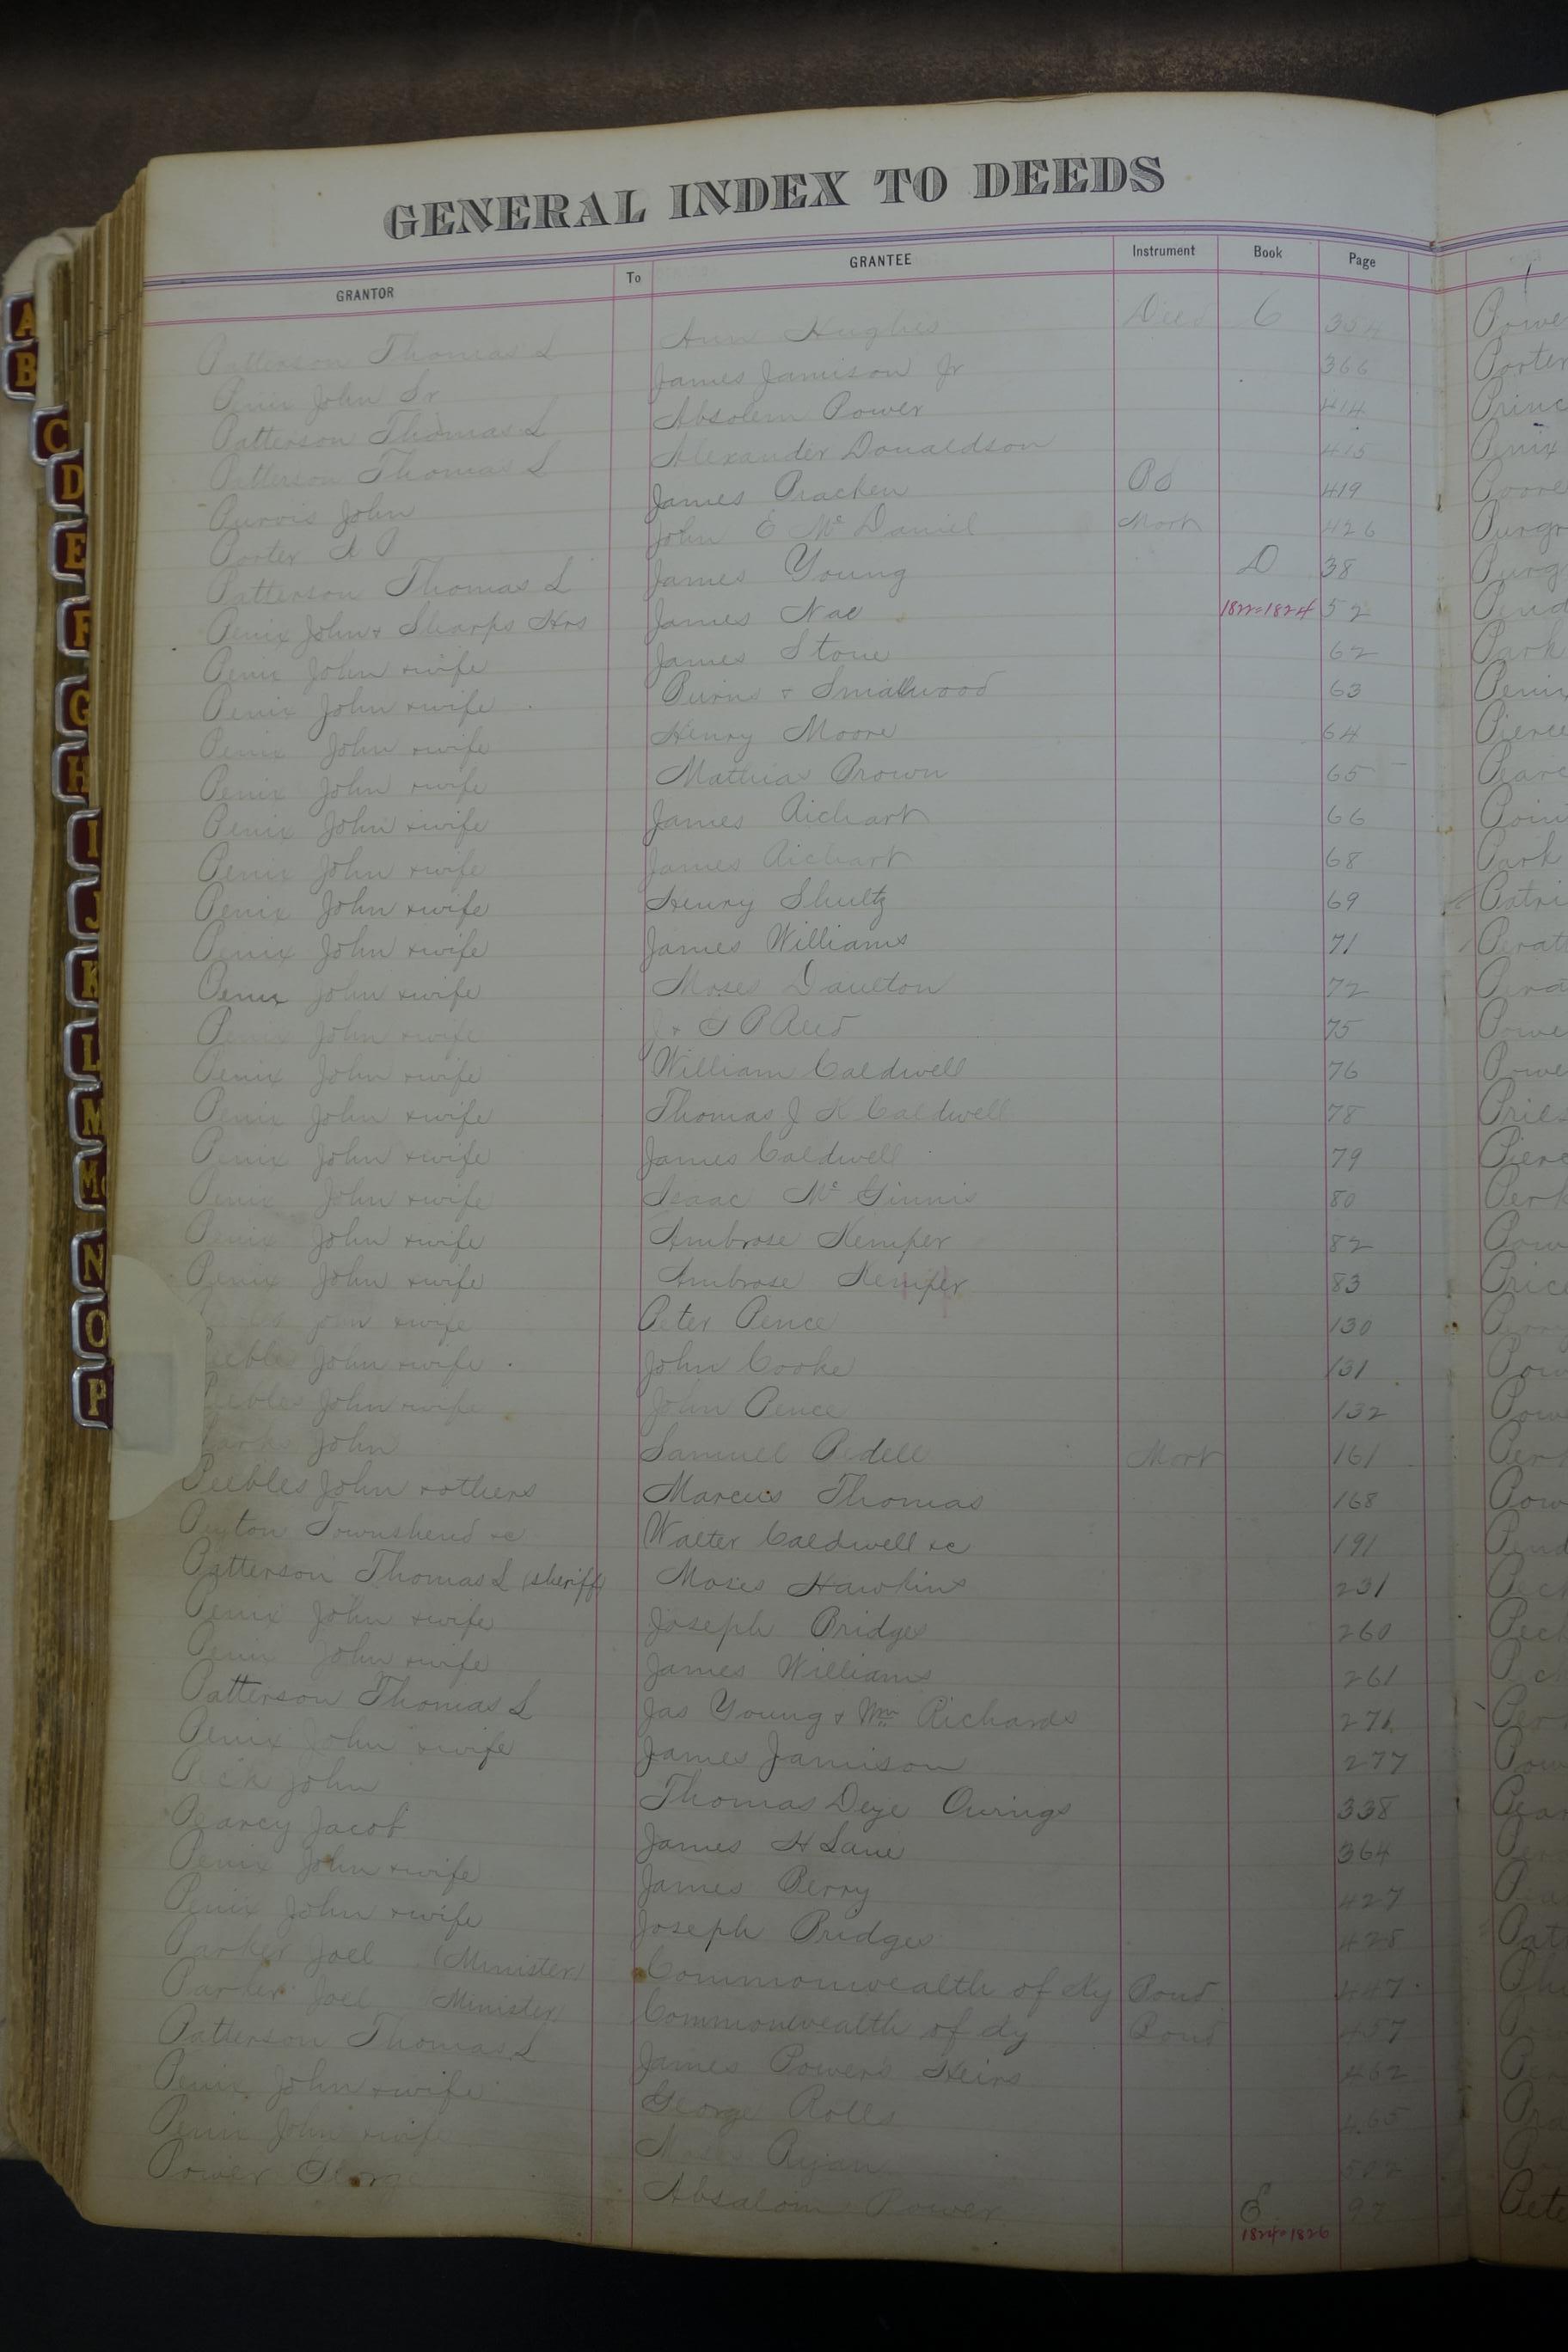 GENERAL INDEX TO DEEDS
GRANTOR To GRANTEE Instrument Book Page
Patterson Thomas L Ann Hughes Deed C 354
Penix John Sr James Jamison Jr 366
Patterson Thomas L Absolem Power 414
Patterson Thomas L Alexander Donaldson 415
Purvis John James Bracken 419
Porter John E Mc Daniel Mort 426
Patterson Thomas L James Young D 38
Penix John & Sharps Hrs James 1822=1824 52
Penix John & wife James Stone 62
Penix John & wife Burns & Smallwood 63
Penix John & wife Henry Moore 64
Penix John & wife Mathias Brown 65
Penix John & wife James Richart 66
Penix John & wife James Richart 68
Penix John & wife Henry Shultz 69
Penix John & wife James Williams 71
Penix John & wife Moses Daulton 72
Penix John & wife J & Reed 75
Penix John & wife William Caldwell 76
Penix John & wife Thomas J K Caldwell 78
Penix John & wife James Caldwell 79
Penix John & wife Isaac Mc Ginnis 80
Penix John & wife Ambrose Kemper 82
Penix John & wife Ambrose Kemper 83
John & wife Peter Pence 130
Peebles John & wife John Cooke 131
Peebles John & wife John Pence 132
John Samuel Mort 161
Peebles John & others Marcus Thomas 168
Townshend &c Walter Caldwell &c 191
Patterson Thomas L (sheriff) Moses Hawkins 231
Penix John & wife Joseph Bridges 260
Penix John & wife James Williams 261
Patterson Thomas L Jas Young & Wm Richards 271
Penix John & wife James Jamison 277
Peck John Thomas Deye Owings 338
Pearcy Jacob James H Lane 364
Penix John & wife James Berry 427
Penix John & wife Joseph Bridges 428
Parker Joel (Minister) Commonwealth of Ky Bond 447
Parker Joel (Minister) Commonwealth of Ky Bond 457
Patterson Thomas L James Powers Heirs 462
Penix John & wife George Rolls 465
Penix John & wife Moses Ryan 502
Power George Absalom Power E 97
1824=1826